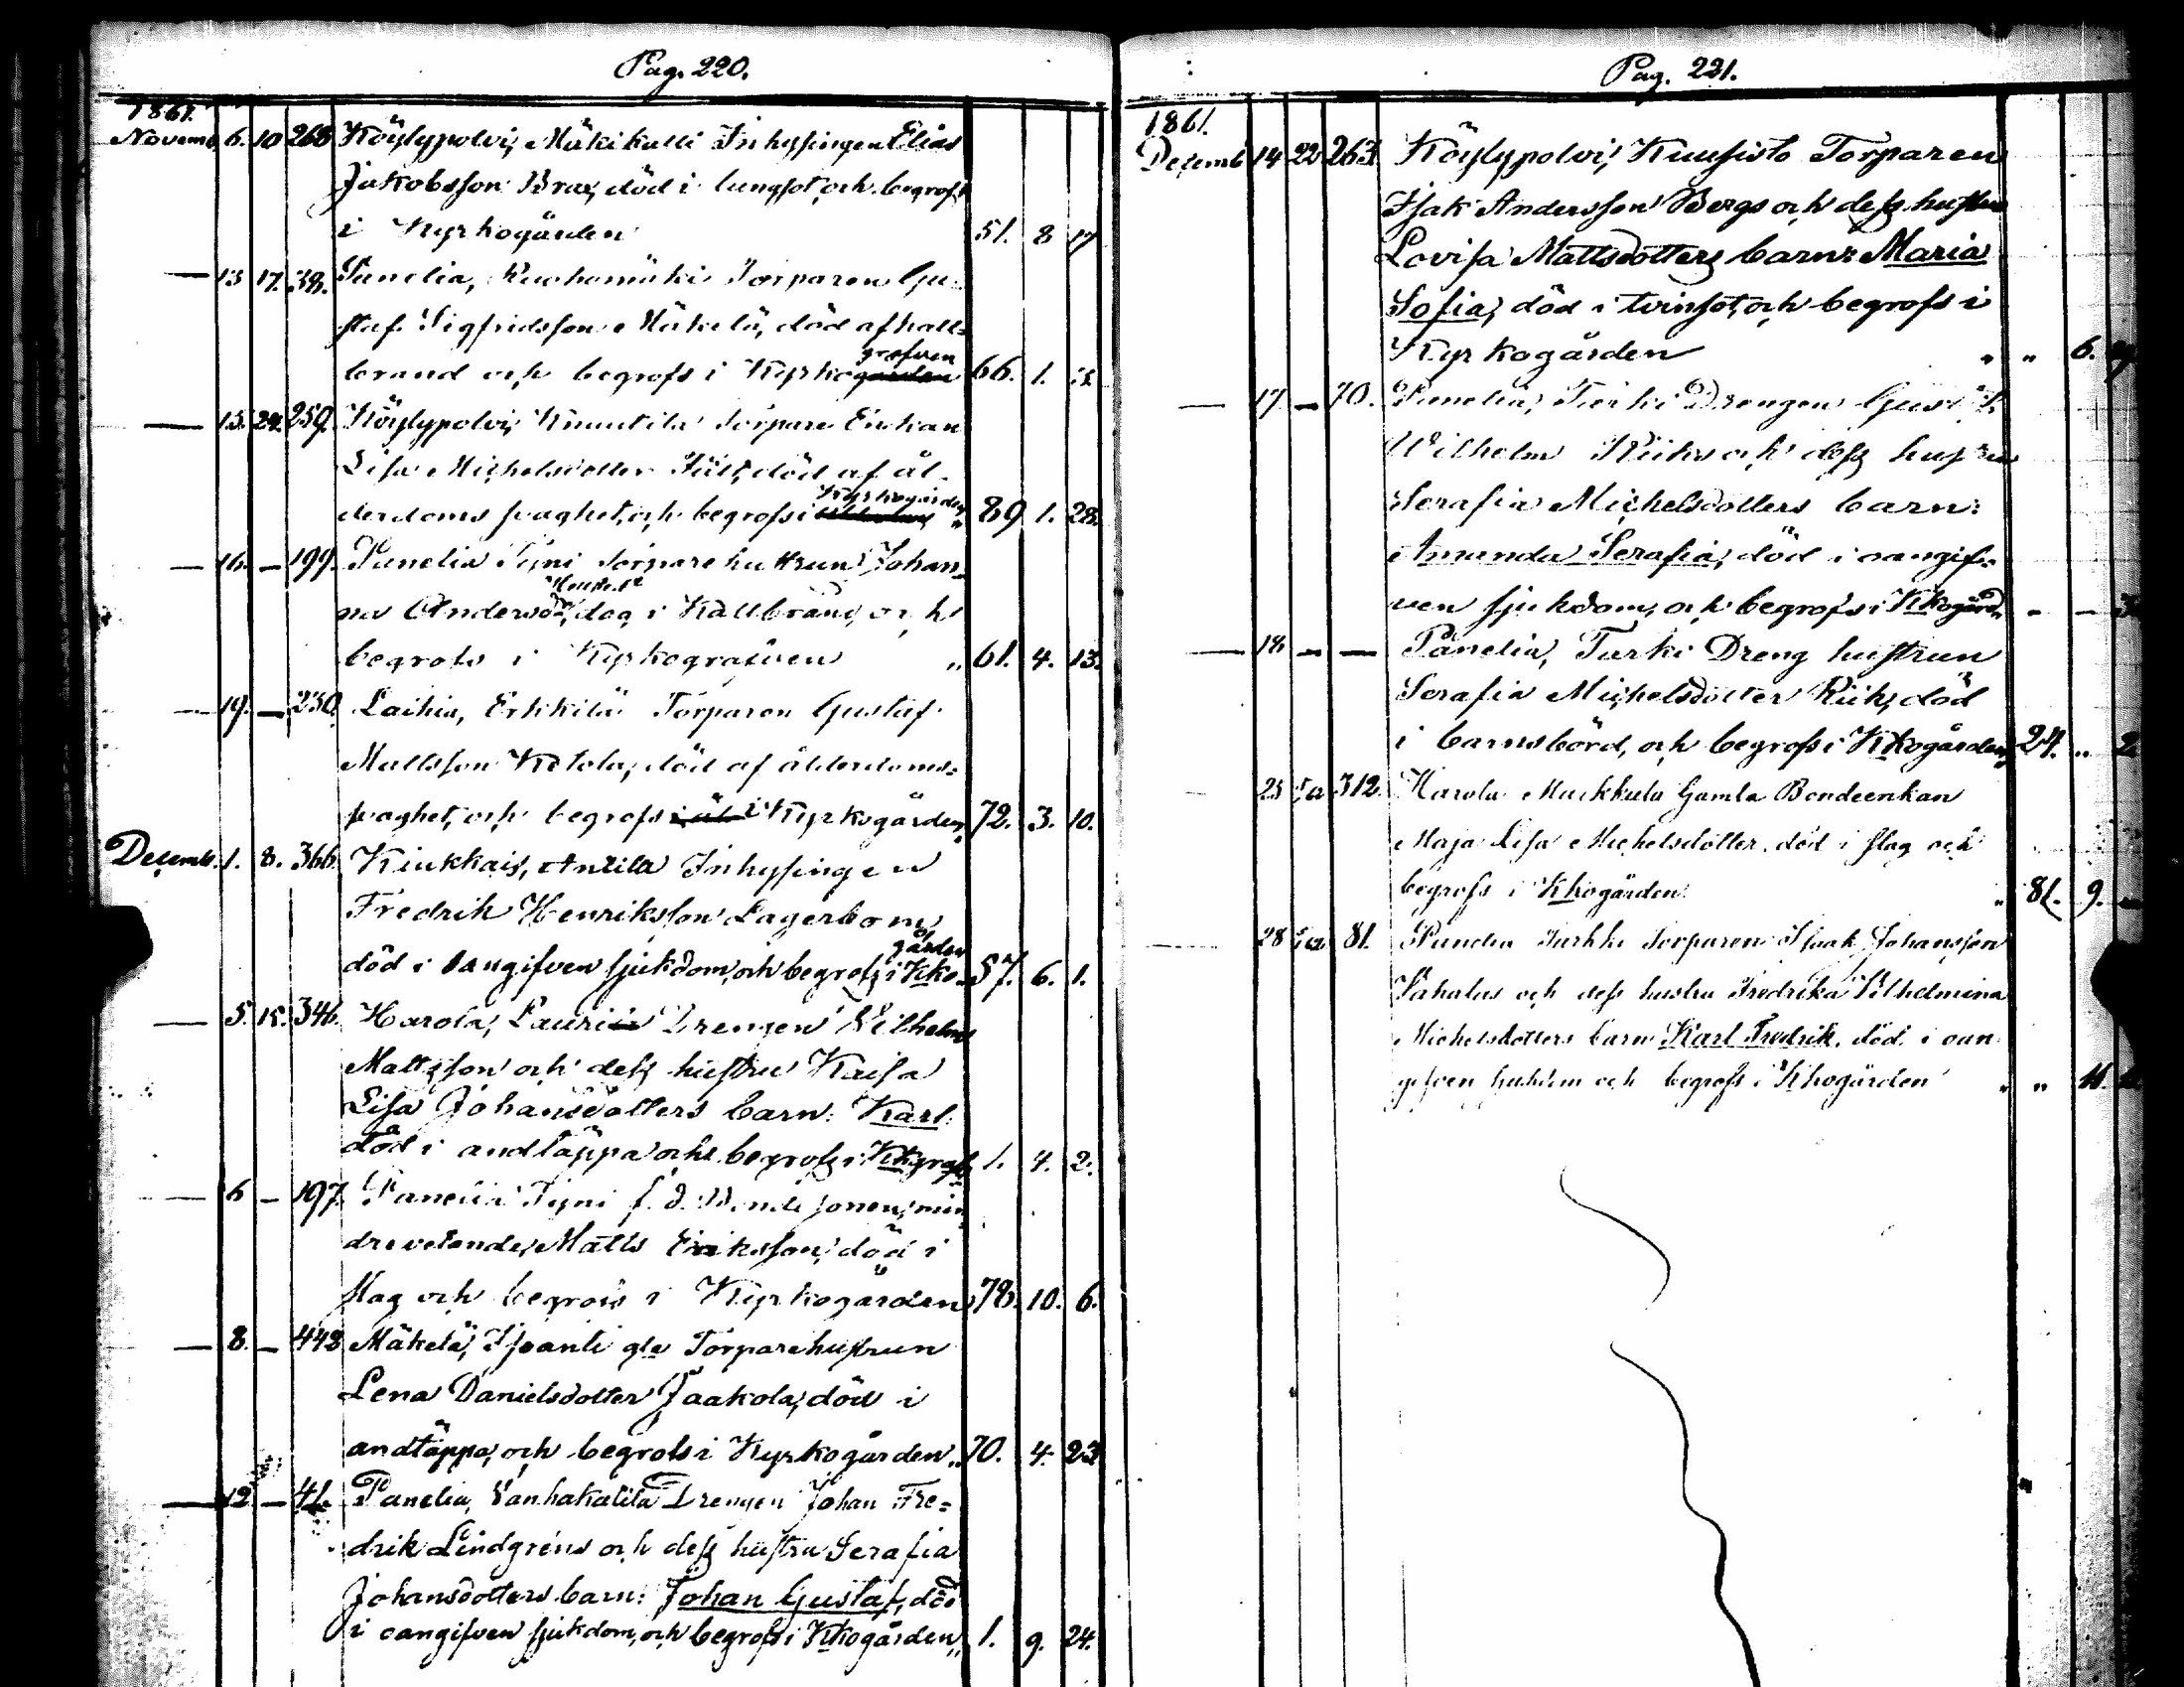 Pag. 220.
1861.
Novemb. 6. 10 268 Köylypolvi, Mäkikalli Inhysingen Elias
Jakobsson Brax, död i lungsot, och begrofs
i Kyrkogården 51. 8 17
— 13 17. 38. Panelia, Ruohomäki Torparen Gu-
staf Sigfridsson Mäkelä, död af kall-
brand och begrofs i Kyrkografven 66. 1.
— 15. 24. 259. Köylypolvi, Knuutila Torpare Enkan
Lisa Michelsdotter Fält, död af ål-
derdoms svaghet, och begrofs i Kyrkogården 89 1. 28.
— 16. — 199. Panelia Tyni Torpare hustrun Johan-
na Andersdr, dog i Kallbrand, och
begrofs i Kyrkografven „ 61. 4. 13.
— 19. — 230. Laihia, Erkkilä Torparen Gustaf
Mattsson Ketola, död af ålderdoms-
svaghet, och begrofs i Kyrkogården, 72. 3. 10.
Decemb. 1. 8. 366. Kiukkais, Anttila Inhysingen
Fredrik Henriksson Lagerbom,
död i oangifven sjukdom, och begrofs i Kkogården 57. 6. 1.
— 5. 15. 346. Harola, Lauri Drengen Vilhelm
Mattsson och dess hustru Kaisa
Lisa Johansdotters barn: Karl.
död i andtäppa och begrofs i Kkgraf 1. 4. 2.
— 6 — 197 Panelia Tyni f. d. Bonde sonen, min-
drevetande, Matts Eriksson, död i
slag och begrofs i Kyrkogården 78. 10. 6.
— 8. — 448 Mäkelä, Iivanti gla Torparehustrun
Lena Danielsdotter Jaakola, död i
andtäppa, och begrofs i Kyrkogården „ 70. 4. 23
— 12 — 41. Panelia, Vanhakatila Drengen Johan Fre-
drik Lindgrens och dess hustru Serafia
Johansdotters barn: Johan Gustaf, död
i oangifven sjukdom, och begrofs i Kkogården „ 1. 9. 24.
Pag. 221.
1861.
Decemb 14 22 263. Köylypolvi, Kuusisto Torparen
Isak Andersson Bergs och dess hustru
Lovisa Mattsdotters barn: Maria
Sofia, död i tvinsot, och begrofs i
Kyrkogården „ „ 6.
— 17. — 70. Panelia, Turki Drengen Gust.
Wilhelm Riiks och dess hustru
Serafia Michelsdotters barn:
Amanda Serafia, död i oangif-
ven sjukdom, och begrofs i Kkogård. - —
— 18 — — Panelia, Turki Dreng hustrun
Serafia Michelsdotter Riik, död
i barnsbörd, och begrofs i Kkogården, 24. „
25 312. Harola Muckkula Gamla Bondeenkan
Maja Lisa Michelsdotter, död i slag och
begrofs i Kkogården. „ 81. 9. —
28 81. Panelia Turkki Torparen Isaak Johansson
Pahalas och dess hustru Fredrika Vilhelmina
Michelsdotters barn Karl Fredrik, död i oan
gifven sjukdom och begrofs i Kkogården „ „ 11.